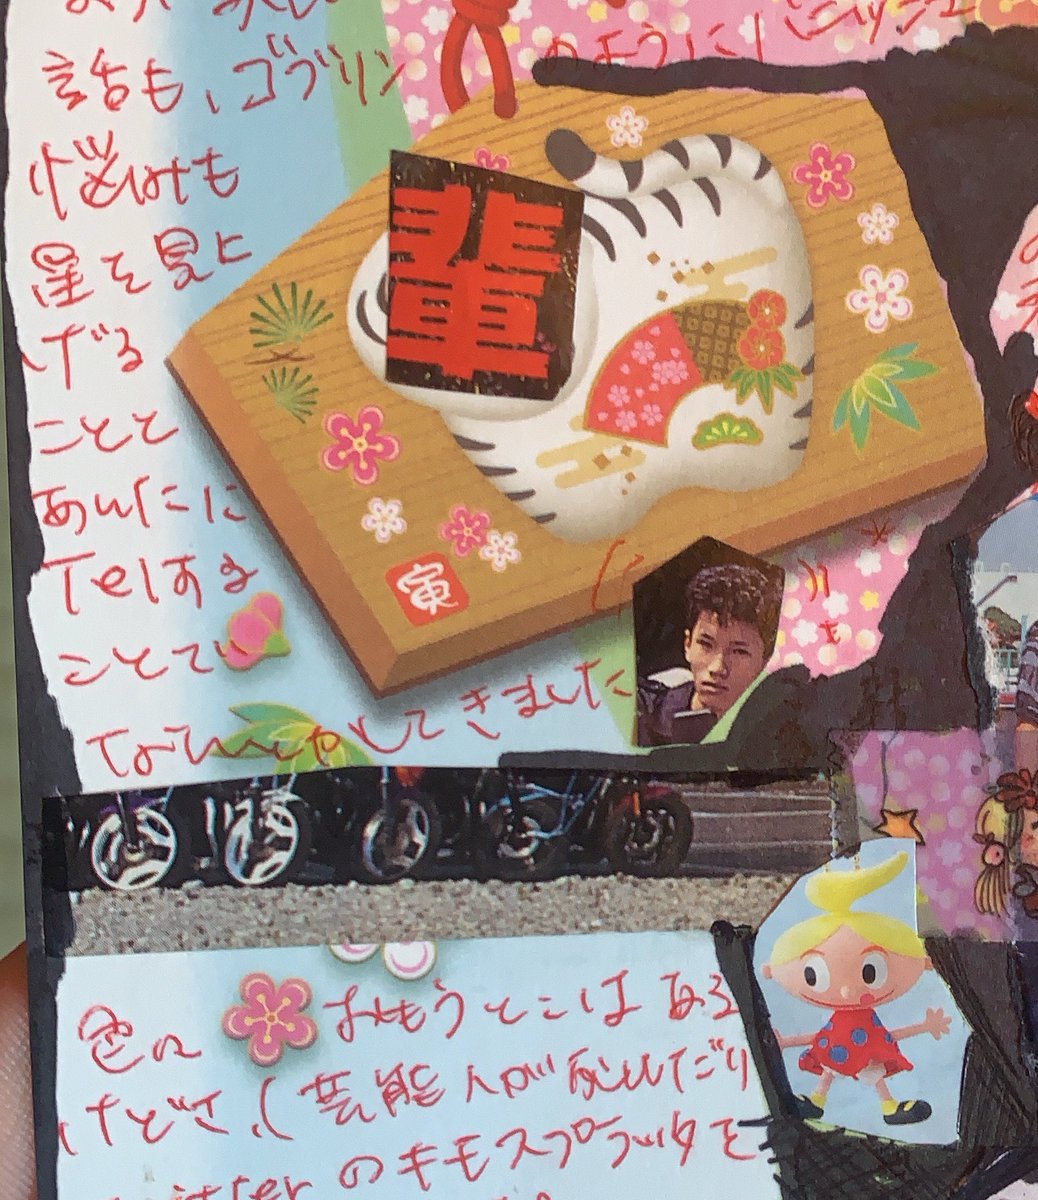 のようにバニッシュ
話も、ゴブリン
悩みも
輩
星を見上
げる
ことと
あんたに
寅
Telする
ことでい
なんとかしてきました
色々おもうところはある
けどさ、(芸能人が死んだり
のキモスプラッタを